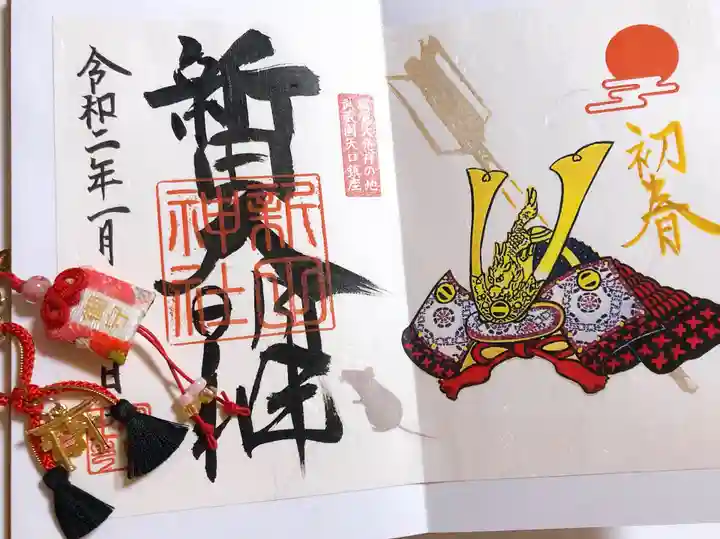 初春
破魔矢発祥の地
武蔵国矢口鎮座
新田大明神
新田
神社
令和二年一月
日